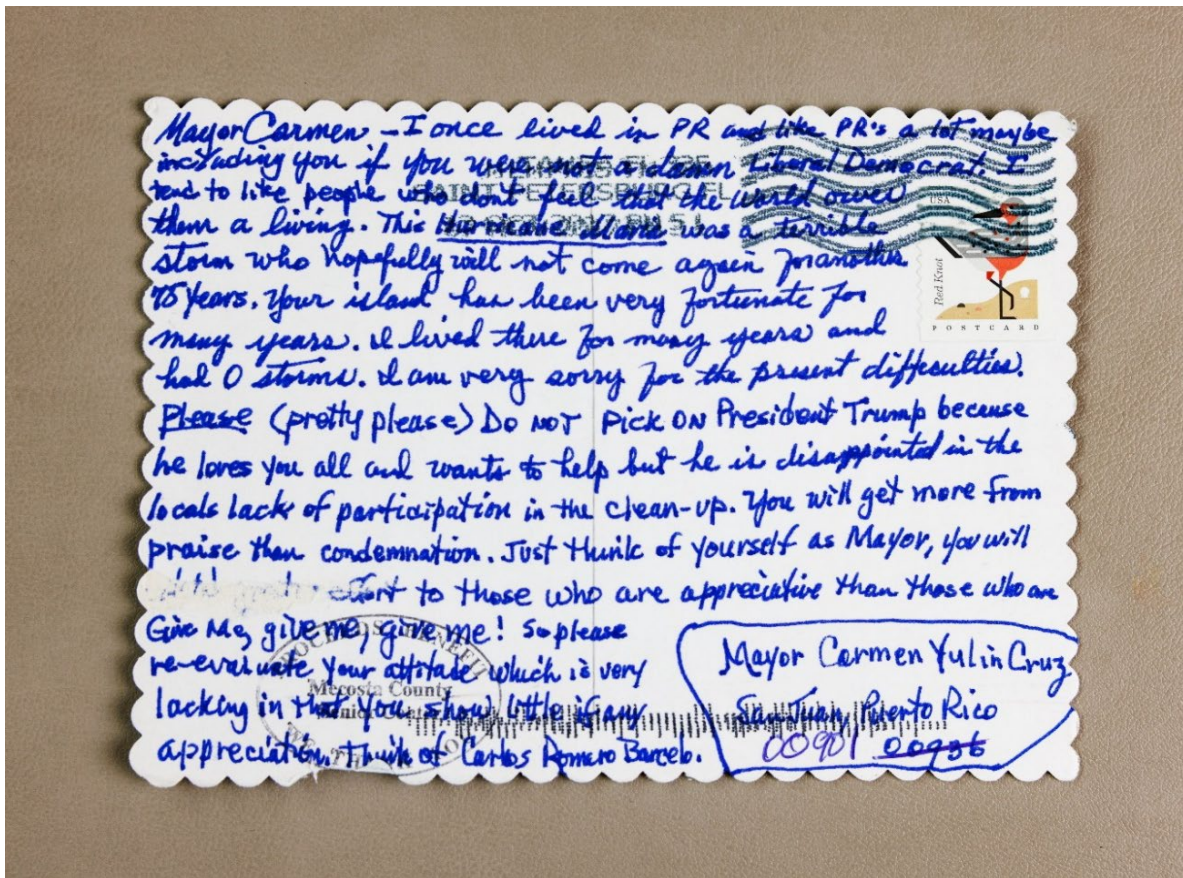 Mayor Carmen - I once lived in PR and like PR's a lot maybe
including you if you were not a damn Liberal Democrat. I
tend to like people who dont feel that the world owes
them a living. This Hurricane Maria was a terrible
storm who hopefully will not come again for another
75 years. Your island has been very fortunate for
many years. I lived there for many years and
had 0 storms. I am very sorry for the present difficulties.
Please (pretty please) Do NOT Pick ON President Trump because
he loves you all and wants to help but he is disappointed in the
locals lack of participation in the clean-up. You will get more from
praise than condemnation. Just think of yourself as Mayor, you will
effort to those who are appreciative than those who are
Give me, give me, give me! So please
re-evaluate your attitude which is very
lacking in that you show little if any
appreciation. Think of Carlos Romero Barcelo.
Mayor Carmen Yulin Cruz
San Juan, Puerto Rico
00901 00936
SAINT PETERSBURG FL
USA
Red Knot
POSTCARD
PROCEEDS BENEFIT
Mecosta County
Senior Center